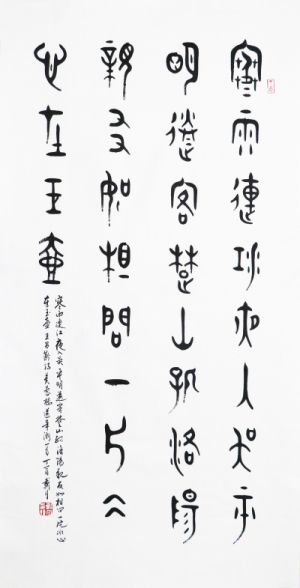 寒雨連江夜入吴平
明送客楚山孤洛陽
親友如相問一片冰
心在玉壺
寒雨連江夜入吴平明送客楚山孤洛陽親友如相問一片冰心
在玉壺王昌齡詩芙蓉樓送辛漸一首丁酉